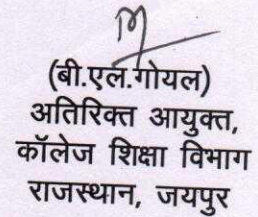 (बी.एल.गोयल)
अतिरिक्त आयुक्त,
कॉलेज शिक्षा विभाग
राजस्थान, जयपुर